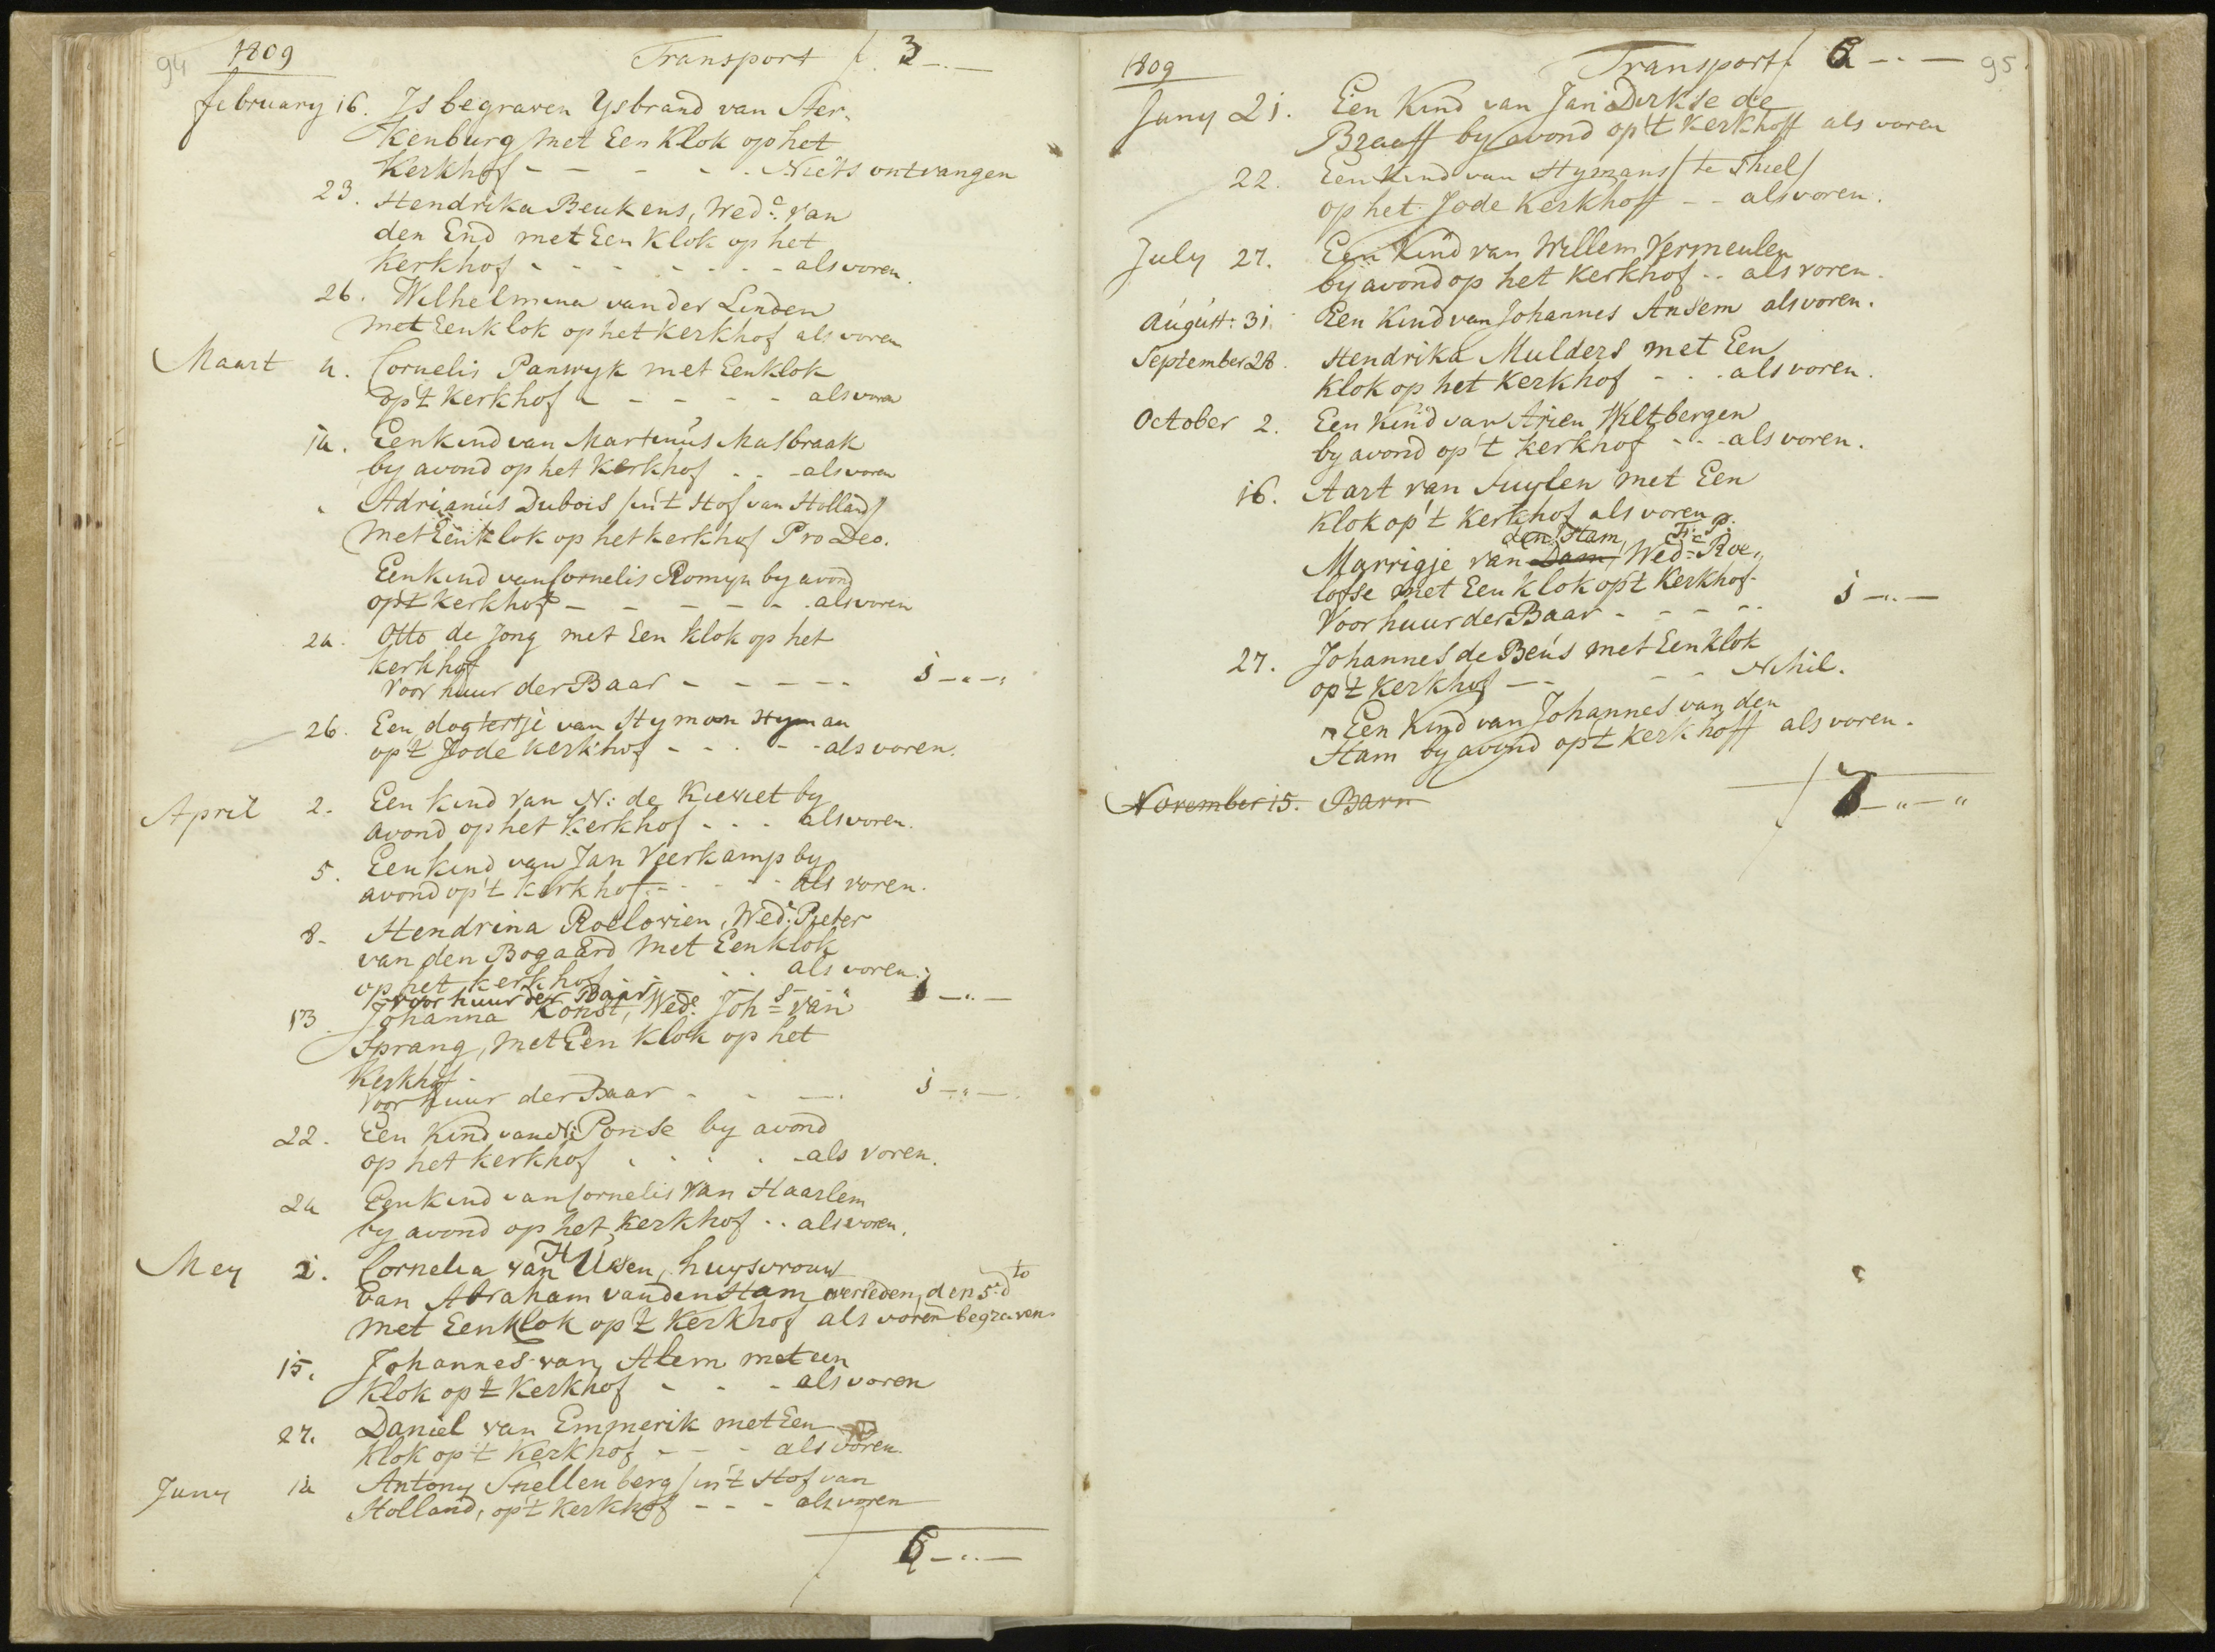 94 1809 Transport f. 3 -.-
february 16. Is begraven Ysbrand van Ster„
kenburg met Een Klok op het
Kerkhof - - - - - Niets ontvangen
23. Hendrika Beukens, Wedᵉ: van
den End met Een Klok op het
Kerkhof - - - - - - - als voren
26. Wilhelmina van der Linden
met Een klok op het kerkhof als voren
Maart 4. Cornelis Panwyk met Een klok
op't Kerkhof - - - - - als voren
14. Een kind van Martinus Masbraak
by avond op het Kerkhof - - - als voren
" Adrianus Dubois /in't Hof van Holland/
met Een klok op het kerkhof Pro Deo.
Een kind van Cornelis Romyn by avond
op't Kerkhof - - - - - - als voren
24. Otto de Jong met Een klok op het
kerkhof
Voor huur der Baar - - - - - 1 -.-.
26. Een dogtertje van Hymon Hyman
op't Jode kerkhof - - - - - als voren.
April 2. Een kind van N: de Kieviet by
avond op het Kerkhof - - - als voren.
5. Een kind van Jan Veerkamp by
avond op't kerkhof - - - - als voren.
8. Hendrina Roelovien, Wedᵉ. Pieter
van den Bogaard met Een klok
op het kerkhof - - - als voren.
voor huur der Baar - - - 1 -.-
13. Johanna Konst, Wedᵉ: Johˢ van
Sprang, met Een Klok op het
Kerkhof.
Voor huur der Baar - - - 1 -.-.
22. Een Kind van N: Ponse by avond
op het kerkhof - - - - - als voren.
24 Een kind van Cornelis van Haarlem
by avond op het kerkhof - - als voren.
Mey 2. Cornelia van H Ussen, huysvrouw
van Abraham van den Ham overleden, den 5: dto
met Een klok op't Kerkhof als voren begraven
15. Johannes van Alem met een
Klok op't Kerkhof - - - als voren
27. Daniel van Emmerik met Een
klok op't Kerkhof - - - als voren.
Juny 14 Antony Snellenberg /in't Hof van
Holland, op't Kerkhof - - - als voren
f 6 -.-
1809 Transport f 6 -.- 95.
Juny 21. Een Kind van Jan Dirkse de
Braaff by avond op't Kerkhoff als voren
22. Een Kind van Hymans / te Thiel /
op het Jode Kerkhoff - - als voren.
July 27. Een Kind van Willem Vermeulen
by avond op het Kerkhof - - als voren.
August: 31. Een Kind van Johannes Ansem als voren.
September 28. Hendrika Mulders met Een
Klok op het Kerkhof - - - als voren.
October 2. Een Kind van Arien Wiltbergen
by avond op't Kerkhof - - - als voren.
16. Aart van Suylen met Een
Klok op't Kerkhof als voren
den Ham,
Marrigje van Dam, Wedᵉ: Roe„
lofse met Een klok op't Kerkhof.
Voor huur der Baar - - - - 1 -.-
27. Johannes de Beus met Een klok
op't Kerkhof - - - - Nihil.
" Een Kind van Johannes van den
Ham by avond op't kerkhoff als voren.
f 7 -„-„
November 15. Barn